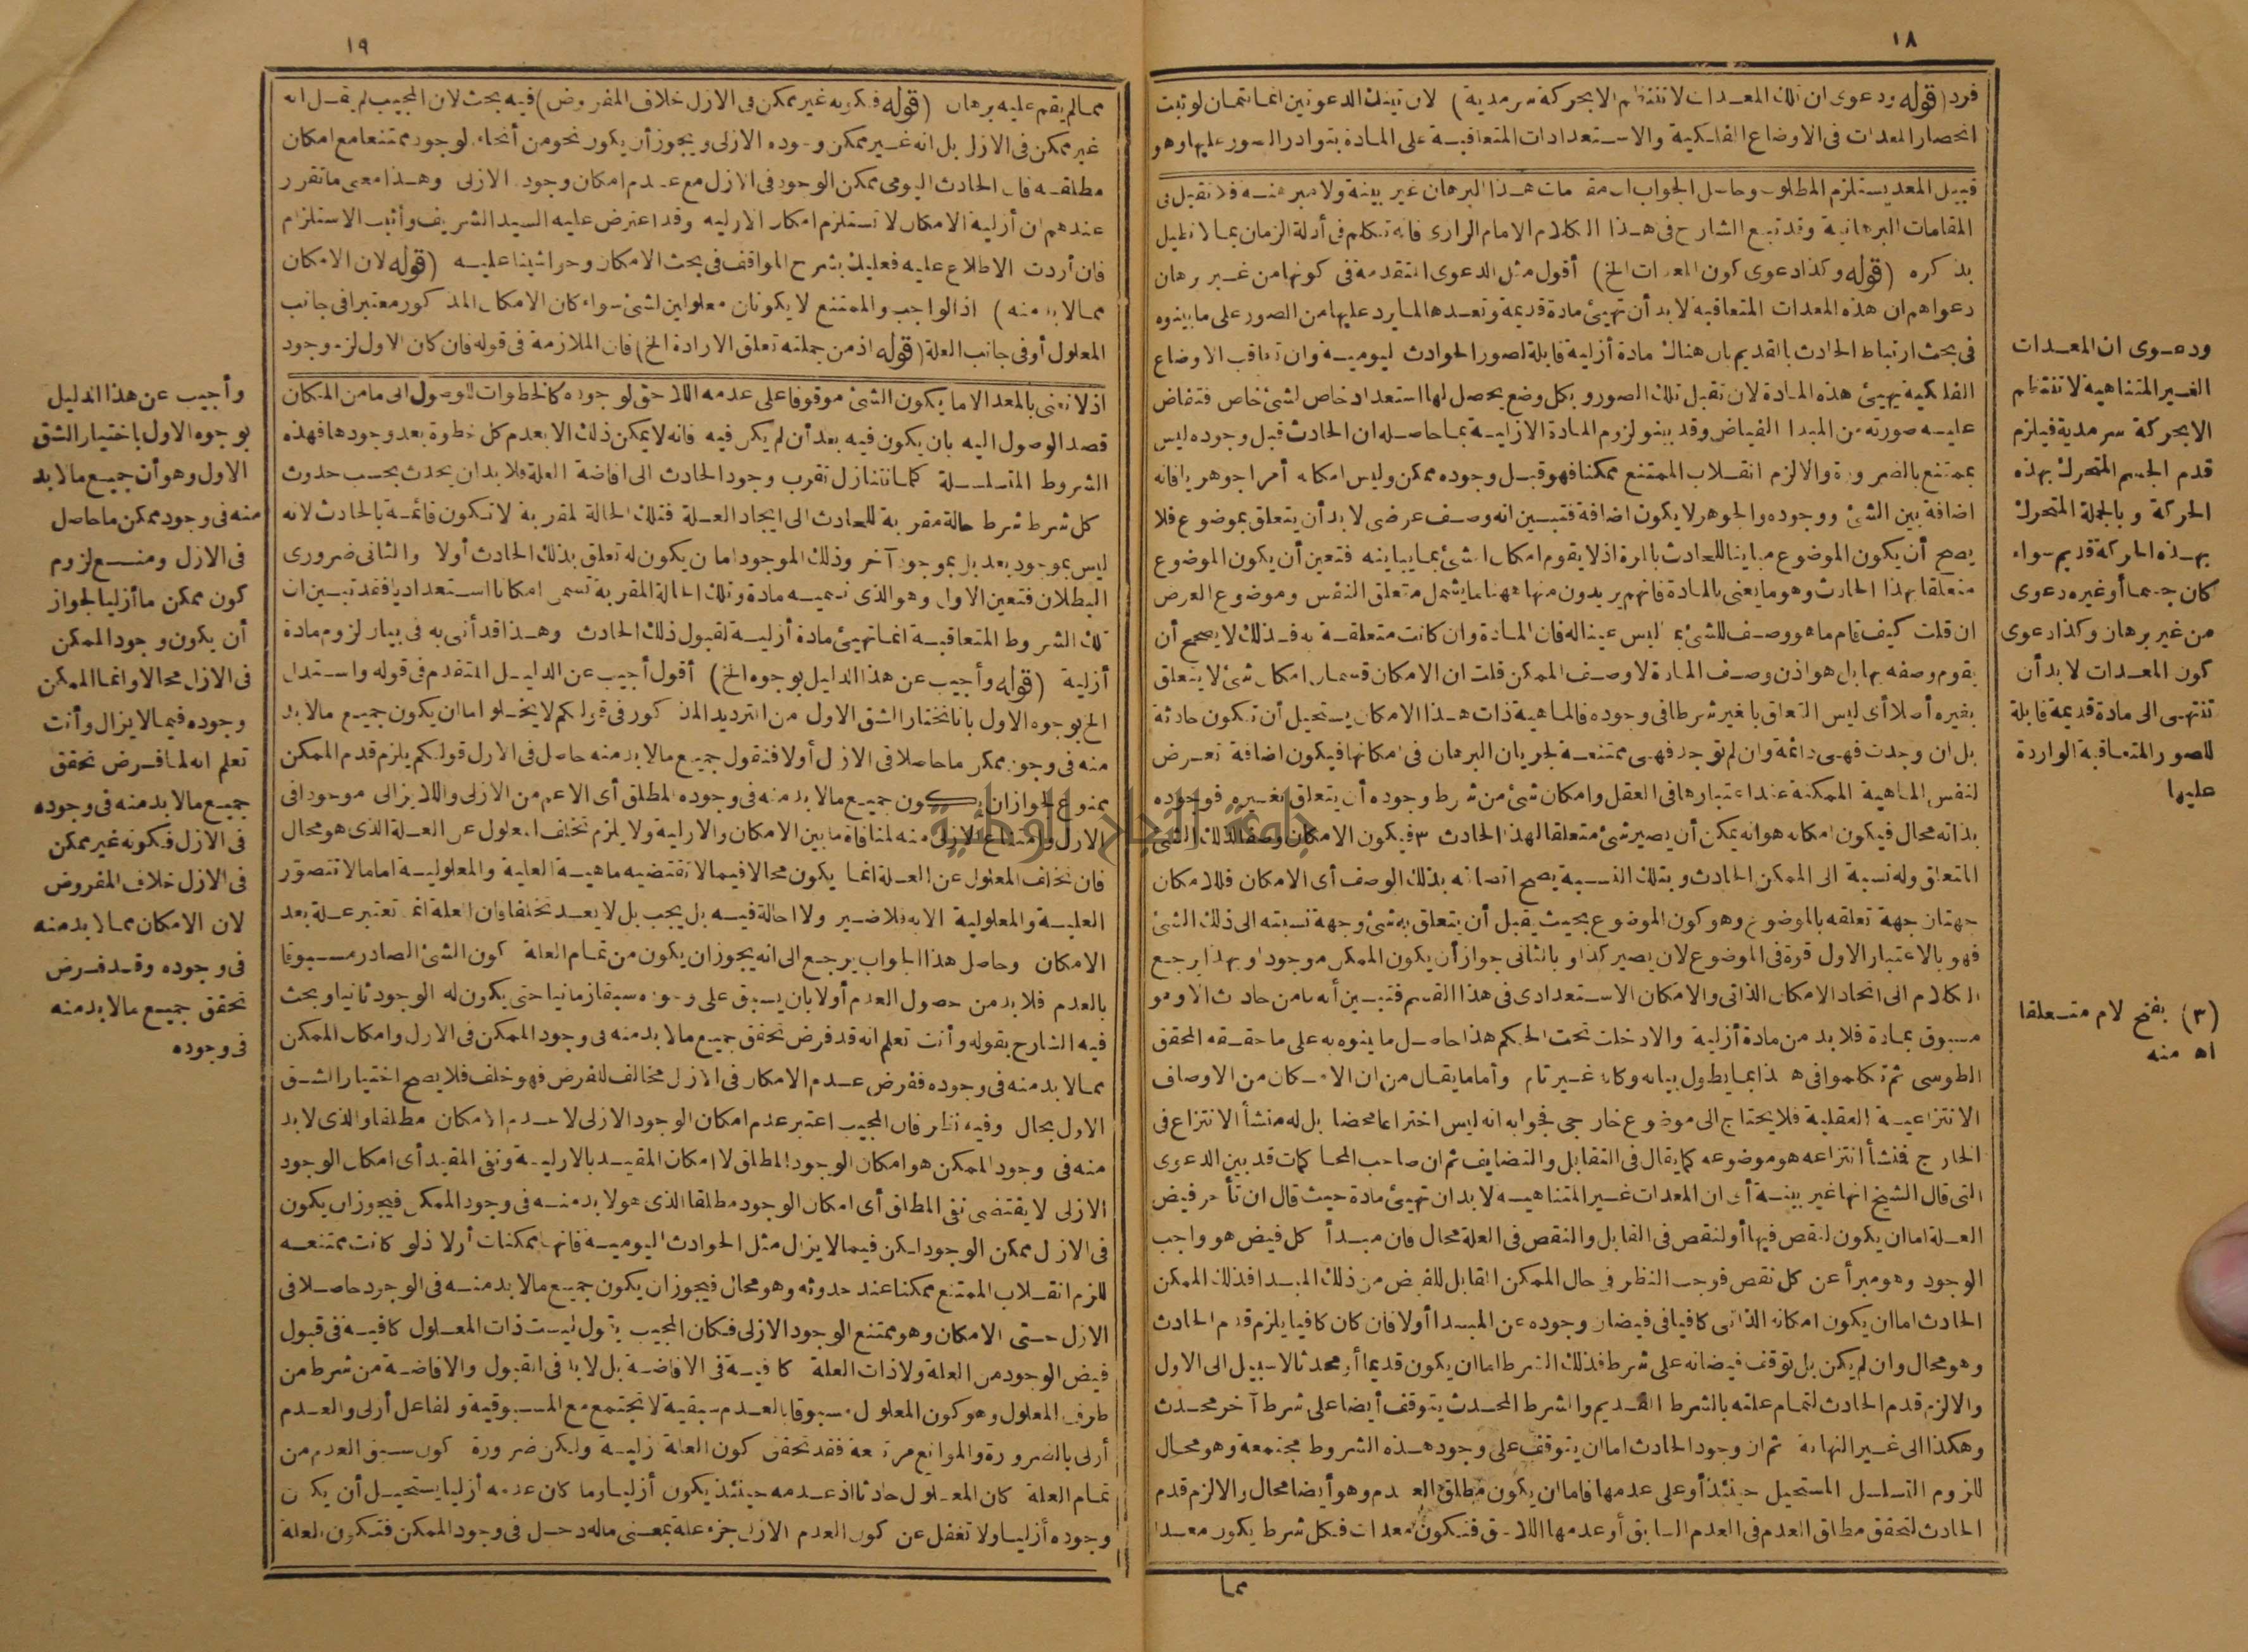 ١٨
فرد (قوله ودعوى ان تلك المعدات لا تنتظم الا بحركة سرمدية) لان تينك الدعوتين انما تتمان لو ثبت
انحصار المعدات فى الاوضاع الفلكية والاستعدادات المتعاقبة على المادة بتوارد الصور عليها وهو
قبيل المعد يستلزم المطلوب وحاصل الجواب ان مقدمات هذا البرهان غير بينة ولا مبرهنة فلا تقبل فى
المقامات البرهانية وقد تبع الشارح فى هذا الكلام الامام الرازى فانه تكلم فى أدلة الزمان بما لا نطيل
بذكره (قوله وكذا دعوى كون المعدات الخ) أقول مثل الدعوى المتقدمة فى كونها من غير برهان
دعواهم ان هذه المعدات المتعاقبة لا بد أن تهيئ مادة قديمة وتعدها لما يرد عليها من الصور على ما بينوه
فى بحث ارتباط الحادث بالقديم بان هناك مادة أزلية قابلة لصور الحوادث ليومية وان تعاقب الاوضاع
الفلكية يهيئ هذه المادة لان تقبل تلك الصور وبكل وضع يحصل لها استعداد خاص لشئ خاص فتفاض
عليه صورته من المبدا الفياض وقد بينو لزوم المادة الازلية بما حاصله ان الحادث قبل وجوده ليس
بممتنع بالضرورة والا لزم انقلاب الممتنع ممكنا فهو قبل وجوده ممكن وليس امكانه أمرا جوهريا فانه
اضافة بين الشئ ووجوده والجوهر لا يكون اضافة فتبين انه وصف عرضى لا بد أن يتعلق بموضوع فلا
يصح أن يكون الموضوع مباينا للحادث بالمرة اذ لا يقوم امكان الشئ بما يباينه فتعين أن يكون الموضوع
متعلقا بهذا الحادث وهو ما يعنى بالمادة فانهم يريدون منها ههنا ما يشمل متعلق النفس وموضوع العرض
ان قلت كيف قام ما هو وصف للشئ بما ليس عينا له فان المادة وان كانت متعلقة به فذلك لا يصحح أن
يقوم وصفه بها بل هو اذن وصف المادة لا وصف الممكن قلت ان الامكان قسمان امكان شئ لا يتعلق
بغيره أصلا أى ليس التعلق بالغير شرطا فى وجوده فالماهية ذات هذا الامكان يستحيل أن تكون حادثة
بل ان وجدت فهى دائمة وان لم توجد فهى ممتنعة لجريان البرهان فى امكانها فيكون اضافة تعرض
لنفس الماهية الممكنة عند اعتبارها فى العقل وامكان شئ من شرط وجوده أن يتعلق بغيره فوجوده
بذاته محال فيكون امكانه هو انه يمكن أن يصير شئ متعلقا لهذا الحادث ٣ فيكون الامكان وصفا لذلك الشئ
المتعلق وله نسبة الى الممكن الحادث وبتلك النسبة يصح اتصافه بذلك الوصف أى الامكان فللامكان
جهتان جهة تعلقه بالموضوع وهو كون الموضوع بحيث يقبل أن يتعلق به شئ وجهة نسبته الى ذلك الشئ
فهو بالاعتبار الاول قوة فى الموضوع لان يصير كذا وبالثانى جواز أن يكون الممكن موجودا وبهذا يرجع
الكلام الى اتحاد الامكان الذاتى والامكان الاستعدادى فى هذا القسم فتبين أنه ما من حادث الا وهو
مسبوق بمادة فلا بد من مادة أزلية والا دخلت تحت الحكم هذا حاصل ما بينوه به على ما حققه المحقق
الطوسى ثم تكلموا فى هذا بما يطول بيانه وكله غير تام وأما ما يقال من ان الامكان من الاوصاف
الانتزاعية العقلية فلا يحتاج الى موضوع خارجى فجوابه انه ليس اختراعا محضا بل له منشأ الانتزاع فى
الخارج فنشأ انتزاعه هو موضوعه كما يقال فى التقابل والتضايف ثم ان صاحب المحاكمات قد بين الدعوى
التى قال الشيخ انها غير بينة أى ان المعدات غير المتناهية لا بد ان تهيئ مادة حيث قال ان تأخر فيض
العلة اما ان يكون لنقص فيها أو لنقص فى القابل والنقص فى العلة محال فان مبدأ كل فيض هو واجب
الوجود وهو مبرأ عن كل نقص فوجب النظر فى حال الممكن القابل للفيض من ذلك المبدا فذلك الممكن
الحادث اما ان يكون امكانه الذاتى كافيا فى فيضان وجوده عن المبدا أولا فان كان كافيا يلزم قدم الحادث
وهو محال وان لم يكن بل توقف فيضانه على شرط فذلك الشرط اما ان يكون قديما أو محدثا لا سبيل الى الاول
والا لزم قدم الحادث لتمام علته بالشرط القديم والشرط المحدث يتوقف أيضا على شرط آخر محدث
وهكذا الى غير النهاية ثم ان وجود الحادث اما ان يتوقف على وجود هذه الشروط مجتمعة وهو محال
للزوم التسلسل المستحيل حينئذ أو على عدمها فاما ان يكون مطلق العدم وهو أيضا محال والا لزم قدم
الحادث لتحقق مطلق العدم فى العدم السابق أو عدمها اللاحق فتكون معدات فكل شرط يكون معدا
مما
ودعوى ان المعدات
الغير المتناهية لا تنتظم
الا بحركة سرمدية فيلزم
قدم الجسم المتحرك بهذه
الحركة وبالجملة المتحرك
بهذه الحركة قديم سواء
كان جسما أو غيره دعوى
من غير برهان وكذا دعوى
كون المعدات لا بد أن
تنتهى الى مادة قديمة قابلة
للصور المتعاقبة الواردة
عليها
(٣) بفتح لام متعلقا
اه منه
١٩
مما لم يقم عليه برهان (قوله فكونه غير ممكن فى الازل خلاف المفروض) فيه بحث لان المجيب لم يقل انه
غير ممكن فى الازل بل انه غير ممكن وجوده الازلى ويجوز أن يكون نحو من أنحاء لوجود ممتنعا مع امكان
مطلقه فان الحادث اليومى ممكن الوجود فى الازل مع عدم امكان وجوده الازلى وهذا معنى ما تقرر
عندهم ان أزلية الامكان لا تستلزم امكان الازلية وقد اعترض عليه السيد الشريف وأثبت الاستلزام
فان أردت الاطلاع عليه فعليك بشرح المواقف فى بحث الامكان وحواشينا عليه (قوله لان الامكان
مما لا بد منه) اذ الواجب والممتنع لا يكونان معلولين لشئ سواء كان الامكان المذكور معتبرا فى جانب
المعلول أو فى جانب العلة (قوله اذ من جملته تعلق الارادة الخ) فان الملازمة فى قوله فان كان الاول لزم وجود
اذ لا نعنى بالمعد الا ما يكون الشئ موقوفا على عدمه اللاحق لوجوده كالخطوات للوصول الى ما من المكان
قصد الوصول اليه بان يكون فيه بعد أن لم يكن فيه فانه لا يمكن ذلك الا بعدم كل خطوة بعد وجودها فهذه
الشروط المتسلسلة كلما تتنازل تقرب وجود الحادث الى افاضة العلة فلا بد ان يحدث بحسب حدوث
كل شرط شرط حالة مقربة للحادث الى ايجاد العلة فتلك الحالة لمقربة لا تكون قائمة بالحادث لانه
ليس بموجود بعد بل بموجود آخر وذلك الموجود اما ن يكون له تعلق بذلك الحادث أولا والثانى ضرورى
البطلان فتعين الاول وهو الذى نسميه مادة وتلك الحالة المقربة تسمى امكانا استعداديا فقد تبين ان
تلك الشروط المتعاقبة انما تهيئ مادة أزلية لقبول ذلك الحادث وهذا قد أتى به فى بيان لزوم مادة
أزلية (قوله وأجيب عن هذا الدليل بوجوه الخ) أقول أجيب عن الدليل المتقدم فى قوله واستدل
الخ بوجوه الاول بانا نختار الشق الاول من الترديد المذكور فى قولكم لا يخلو اما ان يكون جميع ما لا بد
منه فى وجود ممكن ما حاصلا فى الازل أولا فنقول جميع ما لا بد منه حاصل فى الازل قولكم يلزم قدم الممكن
ممنوع لجواز ان يكون جميع ما لا بد منه فى وجوده المطلق أى الاعم من الازلى واللايزالى موجودا فى
الازل وامتناع الازلى منه لمنافاة ما بين الامكان والازلية ولا يلزم تخلف المعلول عن العلة الذى هو محال
فان تخلف المعلول عن العلة انما يكون محالا فيما لا تقتضيه ماهية العلية والمعلولية اما ما لا تتصور
العلية والمعلولية الا به فلا ضير ولا احالة فيه بل يجب بل لا يعد تخلفا فان العلة انما تعتبر علة بعد
الامكان وحاصل هذا الجواب يرجع الى انه يجوز ان يكون من تمام العلة كون الشئ الصادر مسبوقا
بالعدم فلا بد من حصول العدم أولا بان يسبق على وجوده سبقا زمانيا حتى يكون له الوجود ثانيا وبحث
فيه الشارح بقوله وأنت تعلم انه قد فرض تحقق جميع ما لا بد منه فى وجود الممكن فى الازل وامكان الممكن
مما لا بد منه فى وجوده ففرض عدم الامكان فى الازل مخالف للفرض فهو خلف فلا يصح اختيار الشق
الاول بحال وفيه نظر فان المجيب اعتبر عدم امكان الوجود الازلى لا عدم الامكان مطلقا والذى لا بد
منه فى وجود الممكن هو امكان الوجود المطلق لا امكان المقيد بالازلية ونفى المقيد أى امكان الوجود
الازلى لا يقتضى نفى المطلق أى امكان الوجود مطلقا الذى هو لا بد منه فى وجود الممكن فيجوز ان يكون
فى الازل ممكن الوجود لكن فيما لا يزال مثل الحوادث اليومية فانها ممكنات أزلا اذ لو كانت ممتنعة
للزم انقلاب الممتنع ممكنا عند حدوثه وهو محال فيجوز ان يكون جميع ما لا بد منه فى الوجود حاصلا فى
الازل حتى الامكان وهو ممتنع الوجود الازلى فكان المجيب يقول ليست ذات المعلول كافية فى قبول
فيض الوجود من العلة ولا ذات العلة كافية فى الافاضة بل لا بد فى القبول والافاضة من شرط من
طرف المعلول وهو كون المعلول مسبوقا بالعدم سبقية لا تجتمع مع المسبوقية ولفاعل أزلى والعدم
أزلى بالضرورة والموانع مرتفعة فقد تحقق كون العلة أزلية ولكن ضرورة كون سبق العدم من
تمام العلة كان المعلول حادثا اذ عدمه حينئذ يكون أزليا وما كان عدمه أزليا يستحيل أن يكون
وجوده أزليا ولا تغفل عن كون العدم الازلى جزء علة بمعنى ماله دخل فى وجود الممكن فتكون العلة
وأجيب عن هذا الدليل
بوجوه الاول باختيار الشق
الاول وهو أن جميع ما لا بد
منه فى وجود ممكن ما حاصل
فى الازل ومنع لزوم
كون ممكن ما أزليا لجواز
أن يكون وجود الممكن
فى الازل محالا وانما الممكن
وجوده فيما لا يزال وأنت
تعلم انه لما فرض تحقق
جميع ما لا بد منه فى وجوده
فى الازل فكونه غير ممكن
فى الازل خلاف المفروض
لان الامكان مما لا بد منه
فى وجوده وقد فرض
تحقق جميع ما لا بد منه
فى وجوده
جامعة النجاح الوطنية